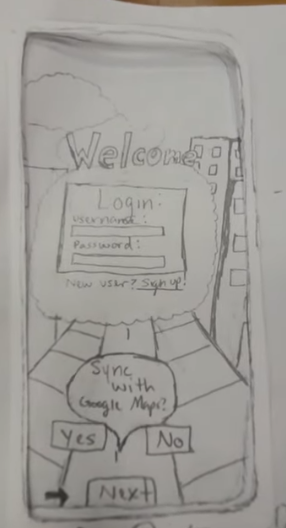 Welcome
Login:
Username:
Password:
New user? Sign up!
Sync
with
Google Maps?
Yes
No
Next